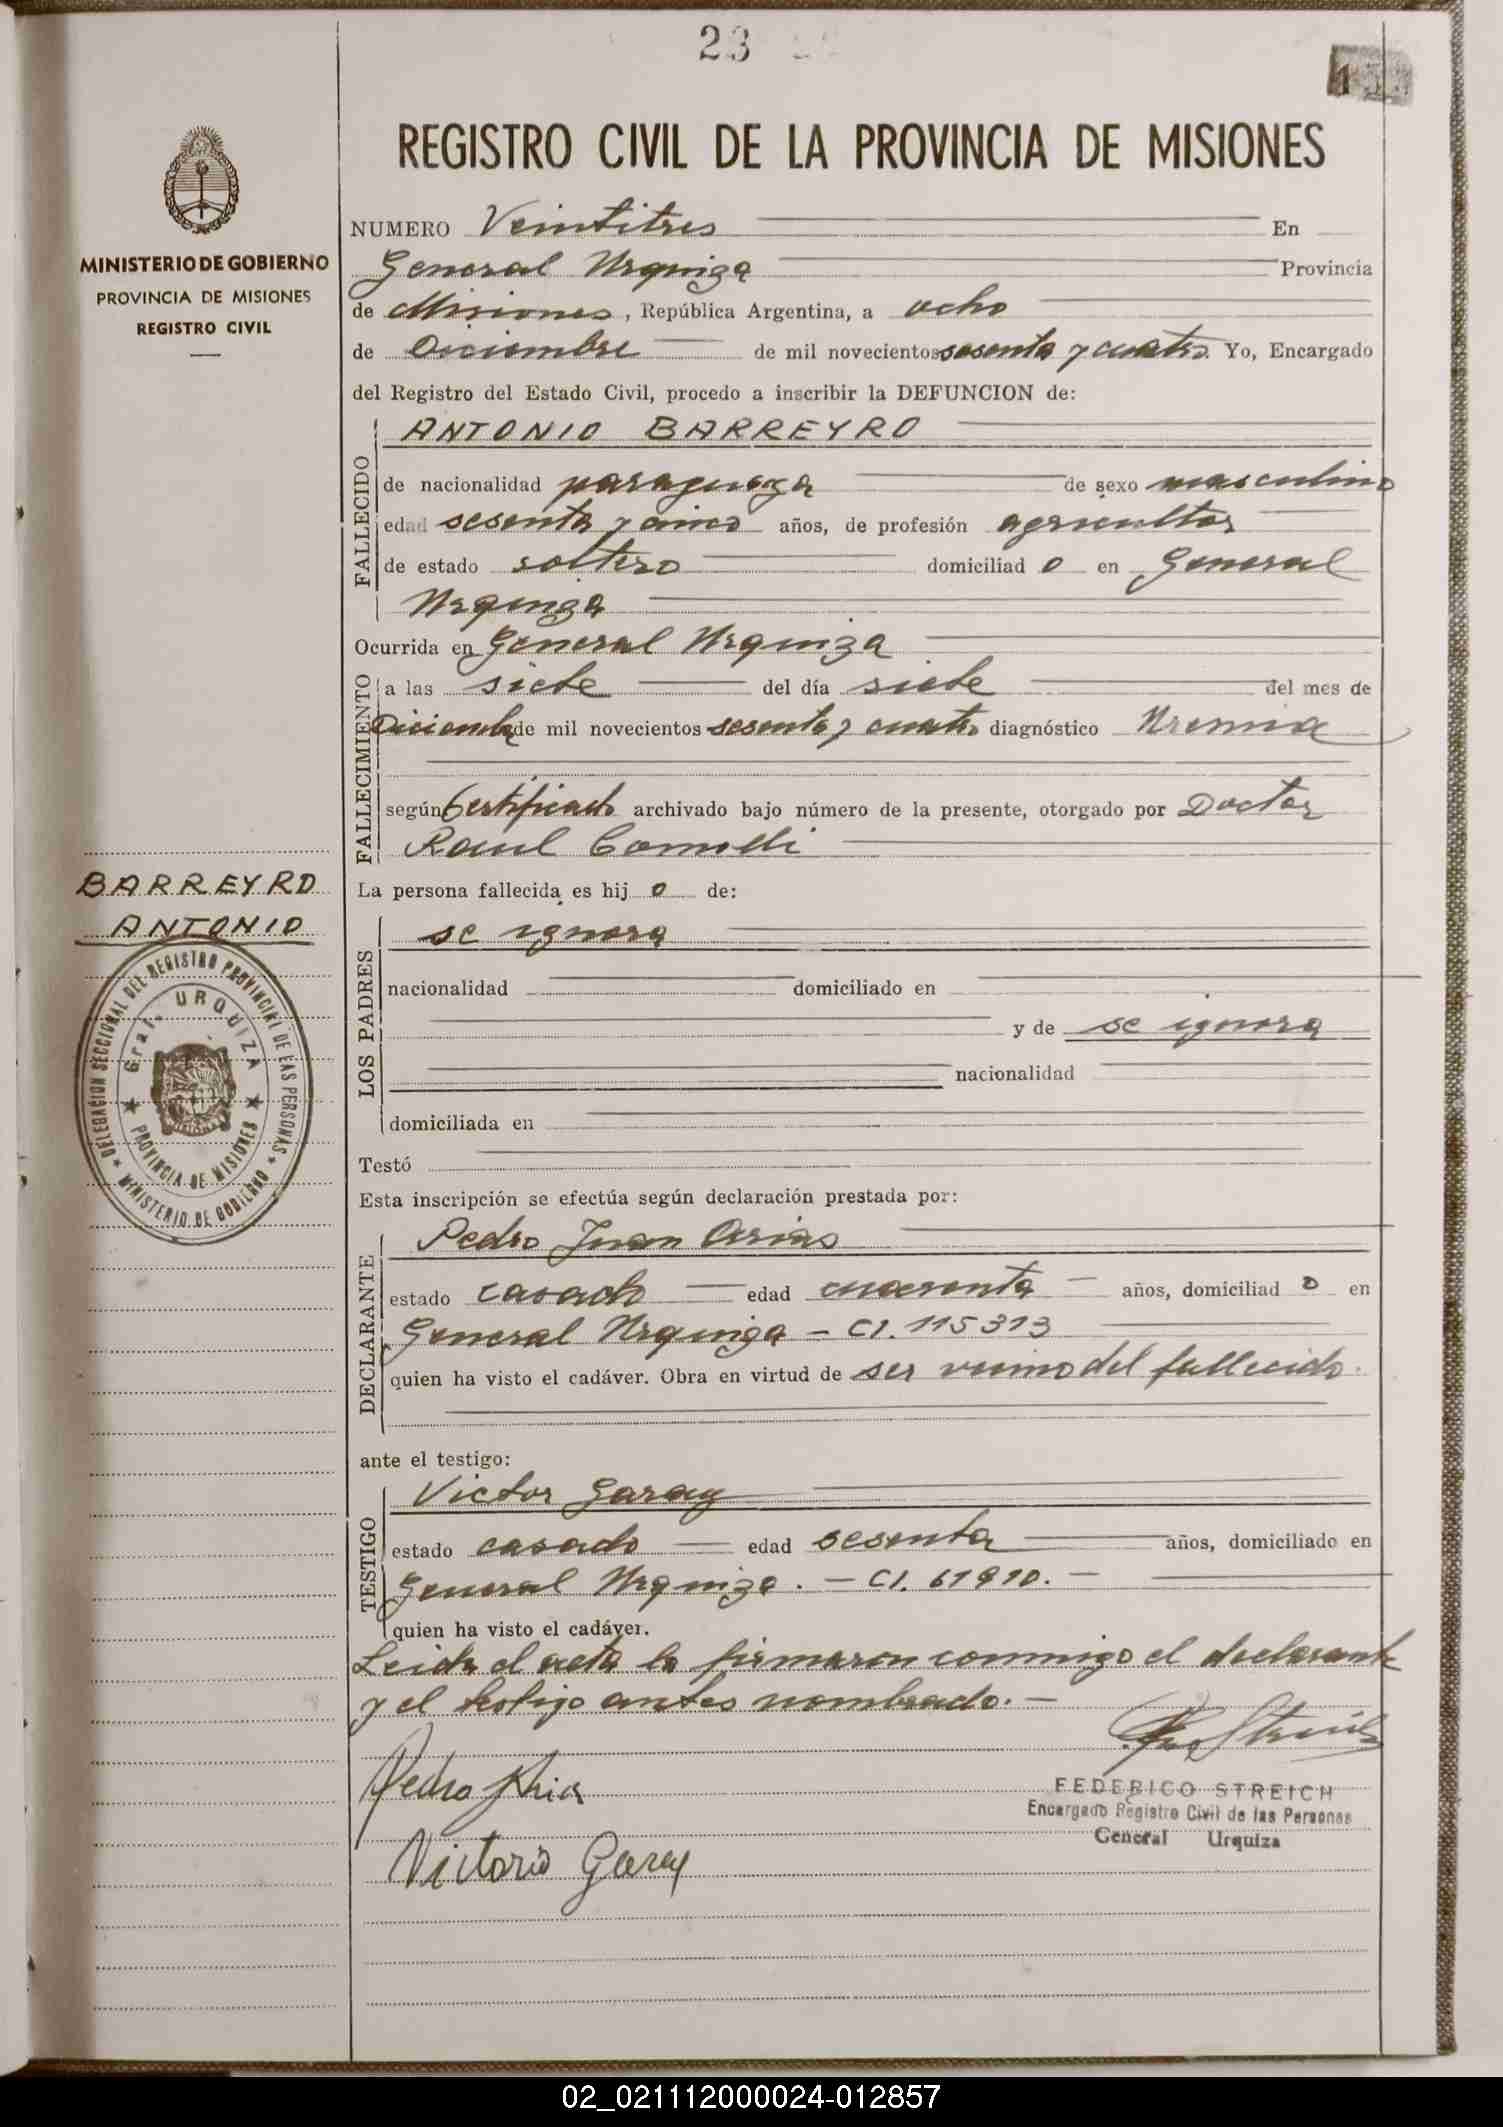 23
REGISTRO CIVIL DE LA PROVINCIA DE MISIONES
MINISTERIO DE GOBIERNO
PROVINCIA DE MISIONES
REGISTRO CIVIL
NUMERO Veintitres En
General Urquiza Provincia
de Misiones, República Argentina, a ocho
de Diciembre de mil novecientos sesenta y cuatro. Yo, Encargado
del Registro del Estado Civil, procedo a inscribir la DEFUNCION de:
FALLECIDO
ANTONIO BARREYRO
de nacionalidad paraguaya de sexo masculino
edad sesenta y cinco años, de profesión agricultor
de estado soltero domiciliad o en General
Urquiza
Ocurrida en General Urquiza
FALLECIMIENTO
a las siete del día siete del mes de
Diciembre de mil novecientos sesenta y cuatro diagnóstico Uremia
según Certificado archivado bajo número de la presente, otorgado por Doctor
Raul Comelli
BARREYRO
ANTONIO
DELEGACION SECCIONAL DEL REGISTRO PROVINCIAL DE LAS PERSONAS
Gral. URQUIZA
PROVINCIA DE MISIONES
MINISTERIO DE GOBIERNO
La persona fallecida es hij o de:
LOS PADRES
se ignora
nacionalidad domiciliado en
y de se ignora
nacionalidad
domiciliada en
Testó
Esta inscripción se efectúa según declaración prestada por:
DECLARANTE
Pedro Juan Arias
estado casado edad cuarenta años, domiciliad o en
General Urquiza - CI. 115313
quien ha visto el cadáver. Obra en virtud de ser vecino del fallecido.
ante el testigo:
TESTIGO
Victor Garay
estado casado edad sesenta años, domiciliado en
General Urquiza. - CI. 61910. -
quien ha visto el cadáver.
Leida el acta la firmaron conmigo el declarante
y el testigo antes nombrado. -
Pedro J Arias
FEDERICO STREICH
Encargado Registro Civil de las Personas
General Urquiza
Victorio Garay
02_021112000024-012857